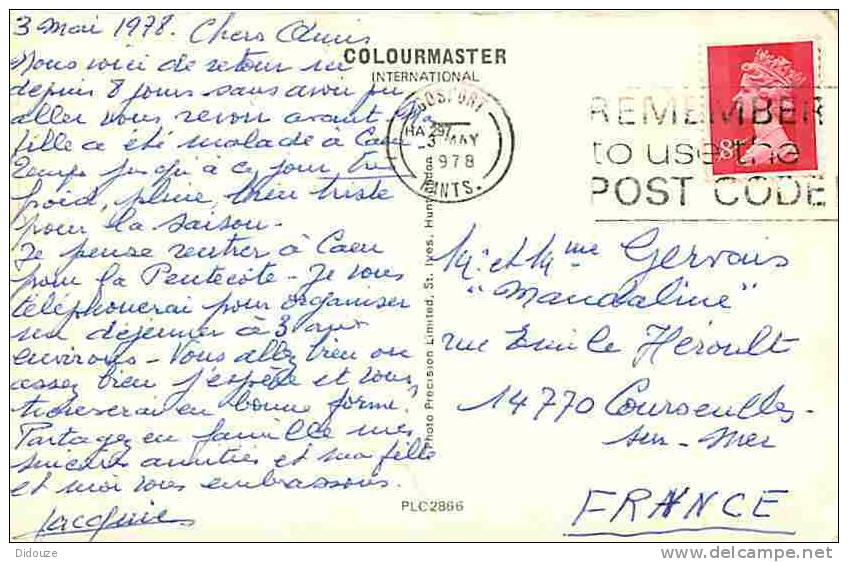 3 Mai 1978. Chers Amis
Nous voici de retour ici
depuis 8 jours sans avoir pu
aller vous revoir avant. Ma
fille a été malade à Caen
Temps jusqu'à ce jour, très
froid, pluie, bien triste
pour la saison.
Je pense rentrer à Caen
pour la Pentecôte - Je vous
téléphonerai pour organiser
un déjeuner à 3 aux
environs - Vous allez bien ou
assez bien j'espère et vous
en bonne forme.
Partagez en famille mes
sincères amitiés et ma fille
et moi vous embrassons.
Jacquie
COLOURMASTER
INTERNATIONAL
Photo Precision Limited, St. Ives, Huntingdon
PLC2866
GOSPORT
HANTS.
3 MAY
1978
8
REMEMBER
to use the
POST CODE
Mr et Mme Gervais
"Mandaline"
rue Emile Héroult
14770 Courseulles-
sur-Mer
FRANCE
Didouze
www.delcampe.net